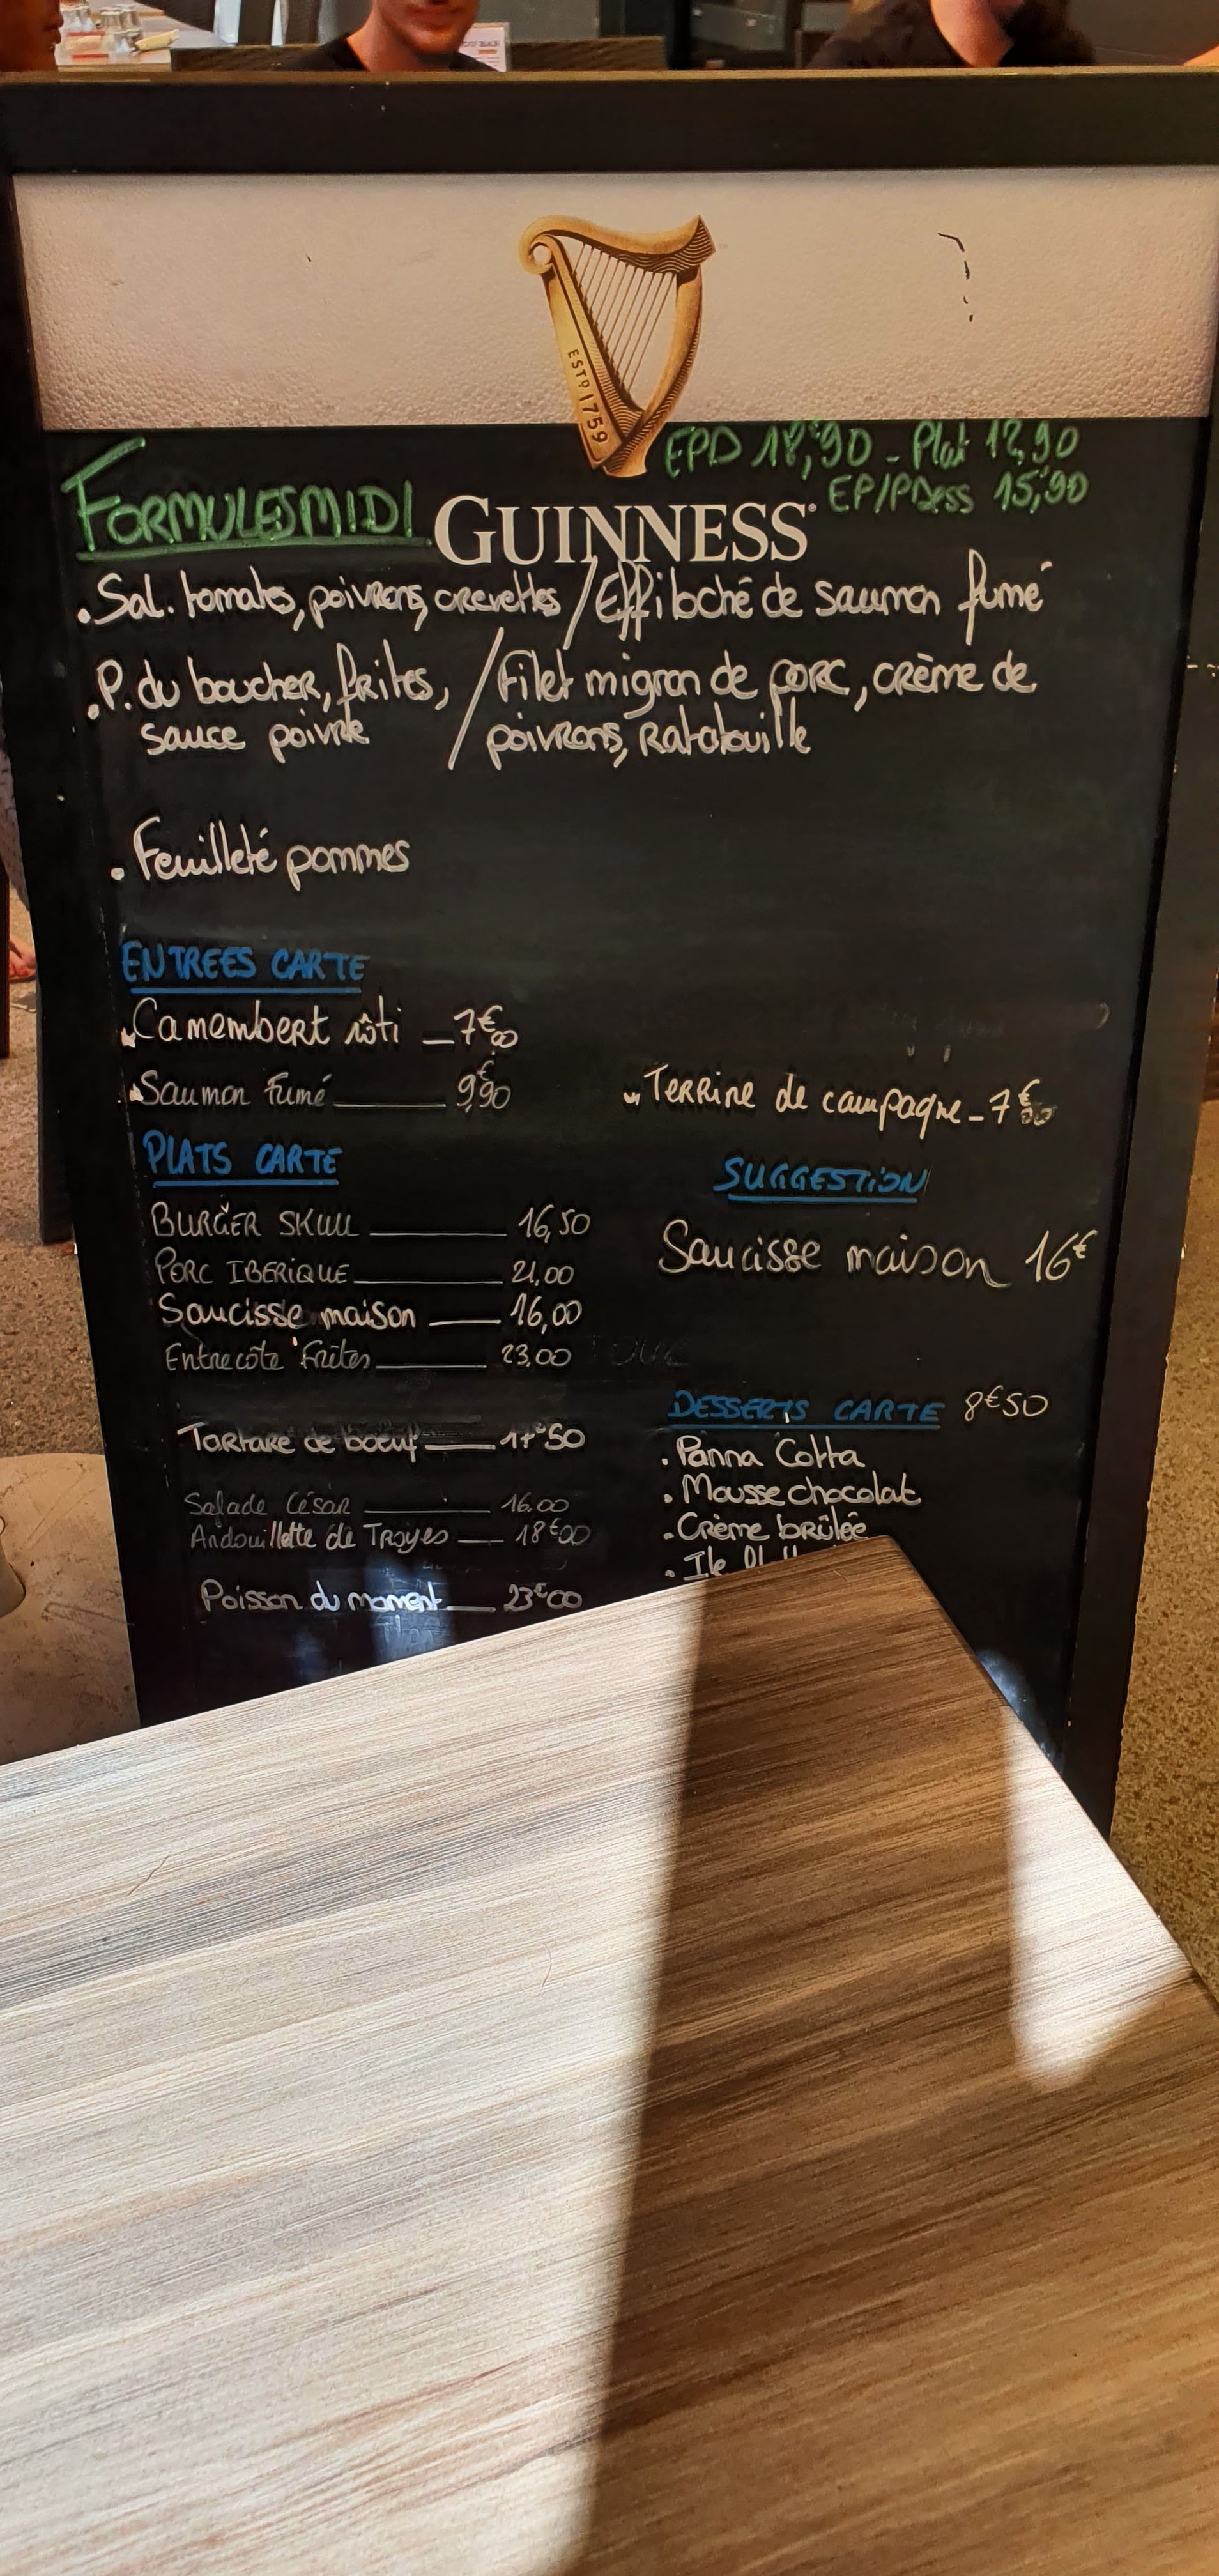 ESTD 1759
EPD 18,90 - Plat 12,90
EP/PDess 15,90
FORMULES MIDI
GUINNESS
. Sal. tomates, poivrons, crevettes / Effiloché de saumon fumé
. P. du boucher, frites, / Filet mignon de porc, crème de
sauce poivre / poivrons, Ratatouille
. Feuilleté pommes
ENTREES CARTE
Camembert rôti _ 7€00
Saumon Fumé 9€90
Terrine de campagne - 7€00
PLATS CARTE
BURGER SKULL 16,50
PORC IBERIQUE 21,00
Saucisse maison 16,00
Entrecôte Frites 23,00
Tartare de boeuf 17€50
Salade César 16.00
Andouillette de Troyes 18€00
Poisson du moment 23€00
SUGGESTION
Saucisse maison 16€
DESSERTS CARTE 8€50
. Panna Cotta
. Mousse chocolat
. Crème brûlée
. Ile